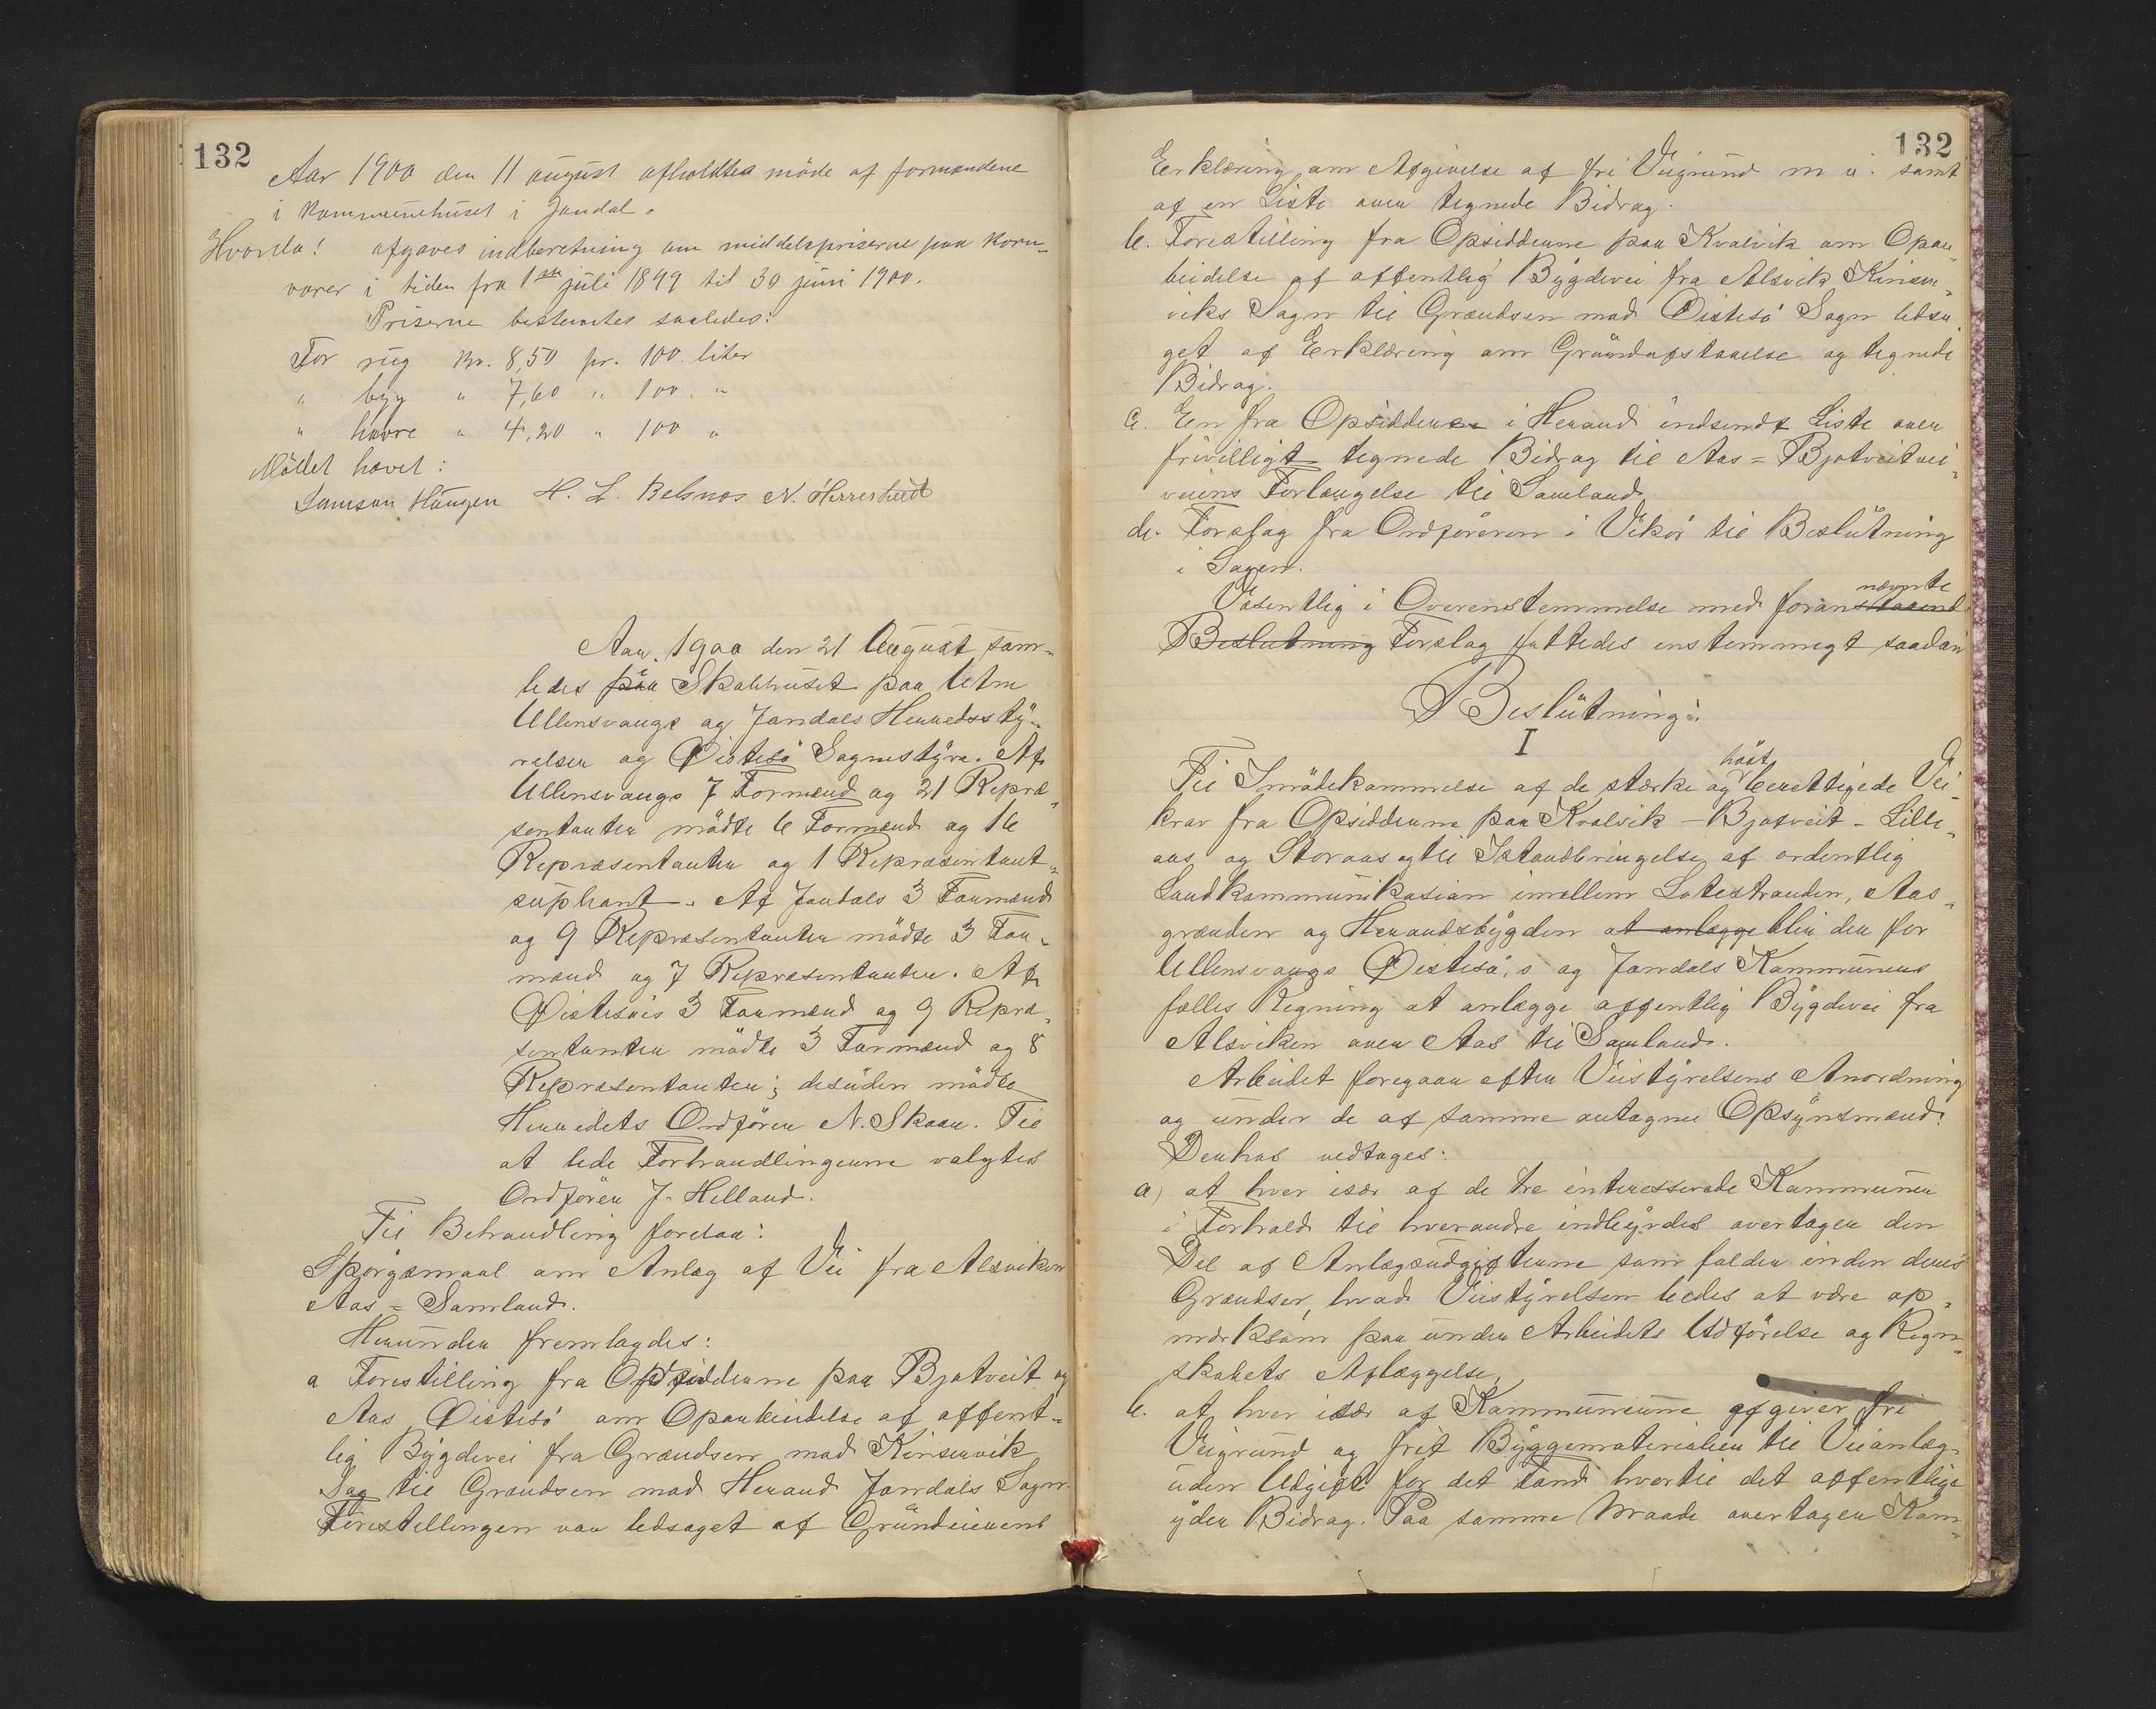 132
Aar 1900 den 11 august afholdtes möde af formændene
i kommunehuset i Jondal.
Hvorda! afgaves indberetning om middelspriserne paa korn-
varer i tiden fra 1ste juli 1899 til 30 juni 1900.
Priserne bestemtes saaledes:
For rug kr. 8,50 pr. 100 liter
" byg " 7,60 " 100 "
" havre " 4,20 " 100 "
Mödet hævet:
Samson Haugen H. L. Belsnes N. Herrestveit
Aar 1900 den 21 August sam-
ledes paa i Skolehuset paa Utne
Ullensvangs og Jondals Herredssty-
relser og Öistesö Sognestyre. Af
Ullensvangs 7 Formænd og 21 Repræ-
sentanter mödte 6 Formænd og 16
Repræsentanter og 1 Repræsentant-
suplant. Af Jondals 3 Formænd
og 9 Repræsentanter mödte 3 For-
mænd og 7 Repræsentanter. Af
Öistesöis 3 Formænd og 9 Repræ-
sentanter mödte 3 Formænd og 8
Repræsentanter; desuden mödte
Herredets Ordförer N. Skaar. Til
at lede Forhandlingerne valgtes
Ordförer J. Helland.
Til Behandling forelaa:
Spörgsmaal om Anlæg af Vei fra Alsviken
Aas = Samland.
Herunder fremlagdes:
a Forestilling fra Opsidderne paa Bjotveit og
Aas, Öistesö om Oparbeidelse af offent-
lig Bygdevei fra Grændsen mod Kinservik
Sog til Grændsen mod Herand Jondals Sogn.
Forestillingen var ledsaget af Grundeiernes
132
Erklæring om Afgivelse af fri Veigrund m. v. samt
af en Liste over tegnede Bidrag.
b. Forestilling fra Opsidderne paa Kvalvik om Opar-
beidelse af offentlig Bygdevei fra Alsvik Kinser-
viks Sogn til Grændsen mod Öistesö Sogn ledsa-
get af Erklæring om Grundafstaaelse og tegnede
Bidrag.
c. En fra Opsidderne i Herand indsendt Liste over
frivilligt tegnede Bidrag til Aas = Bjotveitvei-
veiens Forlængelse til Samland.
d. Forslag fra Ordföreren i Vikör til Beslutning
i Sagen.
Væsentlig i Overenstemmelse med forannævnte staaend
Beslutning Forslag fattedes enstemmigt saadan
Beslutning:
I
Til Imödekommelse af de stærke og höist berettigede Vei-
krav fra Opsidderne paa Kvalvik – Bjotveit – Lille-
aas og Storaas og til Istandbringelse af ordentlig
Landkommunikasion imellem Lotestranden, Aas-
grænden og Herandsbygden at anlægge blir der for
Ullensvangs Öistesö,s og Jondals Kommuners
fælles Regning at anlægge offentlig Bygdevei fra
Alsviken over Aas til Samland.
Arbeidet foregaar efter Veistyrelsens Anordning
og under de af samme antagne Opsynsmænd.
Derhos vedtages:
a) at hver især af de tre interesserede Kommuner
i Forhold til hverandre indbyrdes overtager den
Del af Anlægsudgifterne som falder inden deres
Grændser, hvad Veistyrelsen bedes at være op-
mærksam paa under Arbeidets Udförelse og Regn-
skabets Aflæggelse,
b. at hver især af Kommunerne afgiver fri
Veigrund og frit Byggemateriale til Veianlæg
uden Udgift for det Fond hvortil det offentlige
yder Bidrag. Paa samme Maade overtager Kom-